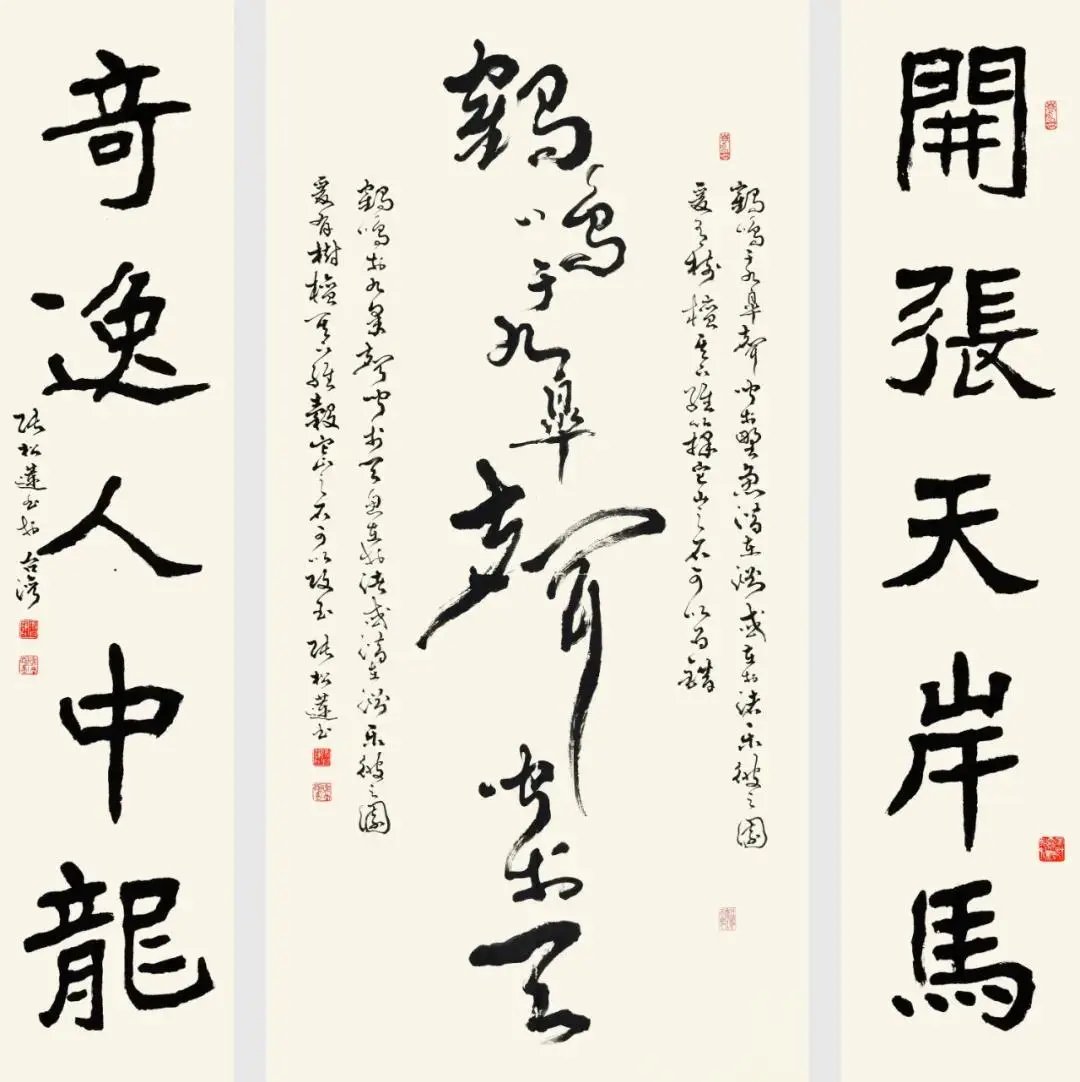 開張天岸馬
鶴鳴于九皋聲聞於野魚潛在淵或在於渚樂彼之園
爰有樹檀其下維蘀它山之石可以為錯
鶴鳴于九皋聲聞於天
鶴鳴於九皋聲聞於天魚在於渚或潛在淵樂彼之園
爰有樹檀其下維穀它山之石可以攻玉 張松蓮書
奇逸人中龍
張松蓮書於台灣